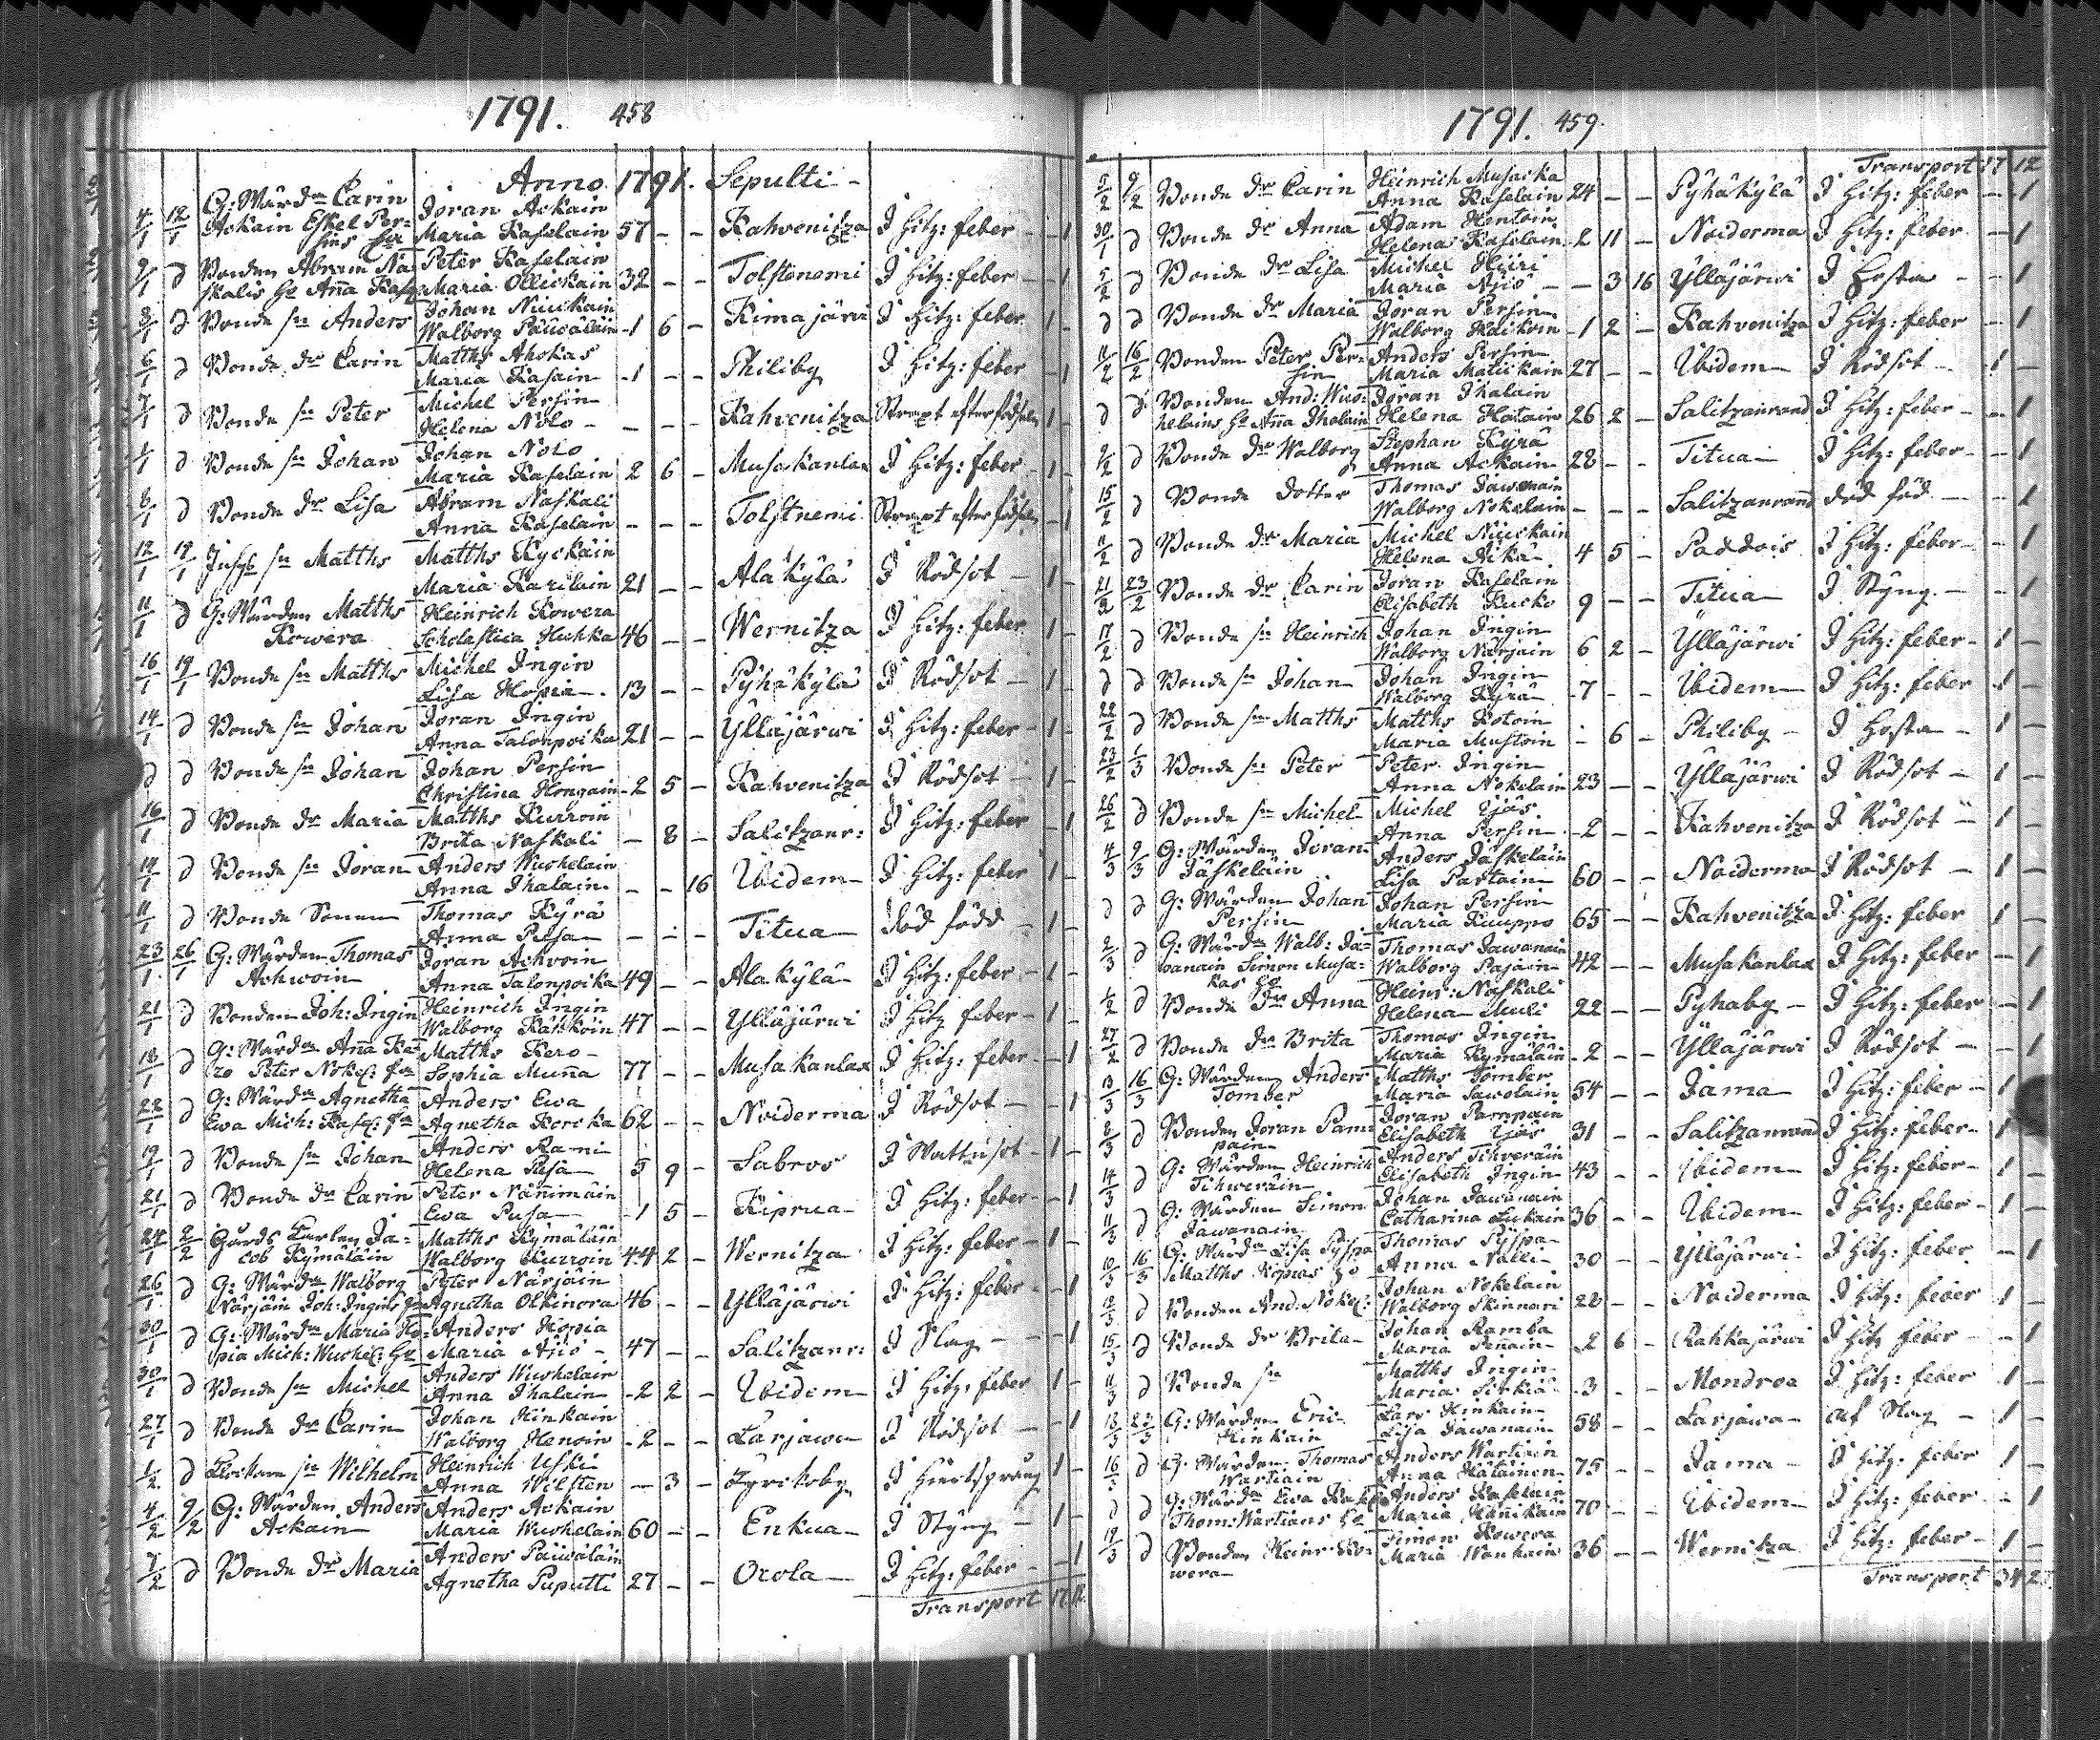 1791. 458
Anno 1791. Sepulti -
4/1 12/1 G: Wärd:n Carin Joran Ackain
Ackain Eskel Per= Maria Kaselain 57 - - Kahvenitza J Hitz: feber - 1
sins
9/1 d Bonden Abram Na Peter Kaselain
skalis Ho Aña Maria Ollickain 32 - - Tolstenemi J Hitz: feber - 1
8/1 d Bonde sn Anders Johan Niuckain
Walborg Päiwäläin -1 6 - Kimajärvi J Hitz: feber 1 -
6/1 d Bonde dr Carin Matths Ahokas
Maria Kasain -1 - - Philiby J Hitz: feber - 1
7/1 d Bonde sn Peter Michel Persin
Helena Nolo - - - - Kahvenitza Strapt efter födseln 1 -
d Bonde sn Johan Johan Nolo
Maria Kaselain 2 6 - Musakanlax J Hitz: feber - 1 -
8/1 d Bonde dr Lisa Abram Naskali
Anna Kaselain - - - Tolstnemi Strapt efter födseln - 1
12/1 Inhys sn Matths Matths Kyckäin
Maria Karilain 21 - - Alakylä J Rödsot - 1 -
11/1 d G: Wärden Matths Heinrich Kowera
Kowera Scholastica Huhka 46 - - Wernitza J Hitz: feber 1 -
16/1 19/1 Bonde sn Matths Michel Ingin
Lisa Hopia - 13 - - Pyhäkylä J Rödsot - 1 -
14/1 d Bonde sn Johan Joran Ingin
Anna Talonpoika 21 - - Ylläjärwi J Hitz: feber - 1 -
d d Bonde sn Johan Johan Persin
Christina Hongain -2 5 - Kahvenitza J Rödsot - 1 -
16/1 d Bonde dr Maria Matths Kurroin
Brita Naskali - 8 - Salitzanr: J Hitz: feber - 1
14/1 d Bonde sn Joran Anders Wuohelain
Anna Ihalain - - 16 Ibidem - J Hitz: feber 1 -
11/1 d Bonde Sonen Thomas Kyrä
Anna Pusa - - - - Titua - död född - 1 -
23/1 26/1 G: Wärden Thomas Joran Achwoin
Achwoin Anna Talonpoika 49 - - Alakylä - J Hitz: feber - 1 -
21/1 d Bonden Joh: Ingin Heinrich Ingin
Walborg Kackoin 47 - - Ylläjärwi J Hitz feber - 1 -
18/1 d G: Wärd:n Aña Ke= Matths Kero -
ro Peter Nokel: Sophia Muña 77 - - Musakanlax J Hitz: feber - - 1
22/1 d G: Wärd:n Agnetha Anders Ewa
Ewa Mich: Kasel: Agnetha Korcka 62 - - Noiderma J Rödsot - - 1
19/1 d Bonde sn Johan Anders Rami
Helena Pusa 5 9 - Sabros J Wattusot - 1 -
21/1 d Bonde dr Carin Peter Näñimäin
Ewa Pusa - 1 5 - Kiprua - J Hitz: feber - - 1
24/1 2/2 Gårds Karlen Ja= Matths Kymäläin
cob Kymäläin Walborg Kurroin 44 2 - Wernitza J Hitz: feber - 1 -
26/1 d G: Wärd:n Walborg Peter Närjäin
Närjäin Joh: Ingins Agnetha Olkinora 46 - - Ylläjärwi J Hitz: feber - 1
30/1 d G: Wärd:n Maria Ho= Anders Hopia
pia Mich: Wuohel: Ho Maria Äjiö - 47 - - Salitzanr: J Slag - - - 1
30/1 d Bonde sn Michel Anders Wuohelain
Anna Ihalain - 2 2 - Ibidem - J Hitz: feber 1 -
27/1 d Bonde dr Carin Johan Hinkain
Walborg Henoin -2 - - Larjawa - J Rödsot - - 1
1/2 d Klockare sn Wilhelm Heinrich Uski
Anna Wilsten - 3 - Kyrckoby J Hiertsprång 1 -
4/2 9/2 G: Wärden Anders Anders Ackain
Ackain - Maria Wuohelain 60 - - Enkua - J Styng - 1 -
7/2 d Bonde dr Maria Anders Päiwäläin
Agnetha Puputti 27 - - Orola - J Hitz: feber - - 1
Transport 17 12
1791. 459.
Transport 17 12
5/2 9/2 Bonde dr Carin Heinrich Musacka
Anna Kaselain 24 - - Pyhäkylä J Hitz: feber - - 1
30/1 d Bonde dr Anna Adam Hentoin
Helena Kaselain - 2 11 - Noiderma J Hitz: feber. - 1
5/2 d Bonde dr Lisa Michel Hijri
Maria Äjiö - - 3 16 Ylläjärwi J Hosta - - 1
d d Bonde dr Maria Joran Persin
Walborg Häckoin - 1 2 - Kahvenitza J Hitz: feber - - 1
11/2 16/2 Bonden Peter Per= Anders Persin
sin Maria Matickain 27 - - Ibidem - J Rödsot - 1 -
d d Bonden And: Wuo= Joran Ihalain
helains Ho Aña Ihalain Helena Hatain 26 2 - Salitzanrand J Hitz: feber - - 1
9/2 d Bonde dr Walborg Stephan Kyrä
Anna Ackain 28 - - Titua - J Hitz: feber - - 1
15/2 d Bonde dotter Thomas Jawanain
Walborg Nokelain - - - Salitzanrand död föd - - 1
11/2 d Bonde dr Maria Michel Niuckain
Helena Äckä - 4 5 - Paddois J Hitz: feber - - 1
21/2 23/2 Bonde dr Carin Joran Kaselain
Elisabeth Kucko 9 - - Titua - J Styng - - 1
17/2 d Bonde sn Heinrich Johan Ingin
Walborg Närjäin 6 2 - Ylläjärwi J Hitz: feber - 1 -
d d Bonde sn Johan Johan Ingin
Walborg Kyrä - 7 - - Ibidem - J Hitz: feber 1 -
22/2 d Bonde sn Matths Matths Kotoin
Maria Mustoin - 6 - Philiby - J Hosta - 1 -
23/2 1/3 Bonde sn Peter Peter Ingin
Anna Nokelain 23 - - Ylläjärwi J Rödsot - 1 -
26/2 d Bonde sn Michel Michel Ijäs
Anna Persin - 2 - - Kahvenitza J Rödsot - 1 -
4/3 9/3 G: Wärden Joran Anders Jäskeläin
Jäskeläin Lisa Partain - 60 - - Noiderma J Rödsot - 1 -
d d G: Wärden Johan Johan Persin
Persin Maria Kuuppo 65 - - Kahvenitza J Hitz: feber 1 -
2/3 d G: Wärd:n Walb: Ja= Thomas Jawanain
wanain Simon Musa= Walborg Pajain - 42 - - Musakanlax J Hitz: feber - 1
kas Ho
1/2 d Bonde dr Anna Heinr: Naskali
Helena Muli 22 - - Pyhaby - J Hitz: feber - 1
27/2 d Bonde dr Brita Thomas Ingin
Maria Kymäläin - 2 - - Ylläjärwi J Rödsot - - 1
13/3 16/3 G: Wärden Anders Matths Tomber
Tomber Maria Sawolain 54 - - Jama - J Hitz: feber - 1
8/3 d Bonden Joran Pam= Joran Pampain
pain Elisabeth Ijäs 31 - - Salitzanrand J Hitz: feber - 1
14/3 d G: Wärden Heinrich Anders Tihweräin
Tihweräin Elisabeth Ingin 43 - - Ibidem - J Hitz: feber - 1 -
11/3 d G: Wärden Simon Johan Jawanain
Jawanain Catharina Lukain 36 - - Ibidem - J Hitz: feber - 1 -
10/3 16/3 G: Wärd:n Lisa Pyspa Thomas Pyspa -
Matths Kopias Ho Anna Nalli - 30 - - Ylläjärwi - J Hitz: feber - 1
12/3 d Bonden And. Nokel: Johan Nokelain
Walborg Skinnari 28 - - Noiderma J Hitz: feber 1 -
15/3 d Bonde dr Brita - Johan Ramba
Maria Peñain - 2 6 - Rahkajärwi J Hitz feber - - 1
11/3 d Bonde sn Matths Ingin
Maria Sirkiä - 3 - - Mondroa J Hitz: feber 1 -
18/3 23/3 G: Wärden Eric Lars Hinkain
Hinkain Lisa Jawanain 58 - - Larjawa - af Slag - 1 -
16/3 d G: Wärden Thomas Anders Wartiain
Wartiain Anna Hätäinen - 75 - - Jama - J Hitz: feber 1 -
d d G: Wärd:n Ewa Kasel: Anders Kaselain
Thom: Wartians Ho Maria Hänikäin 70 - - Ibidem - J Hitz: feber - 1
19/3 d Bonden Heinr: Ko= Simon Kowera
wera - Maria Wankain 36 - - Wernitza J Hitz: feber - 1 -
Transport 34